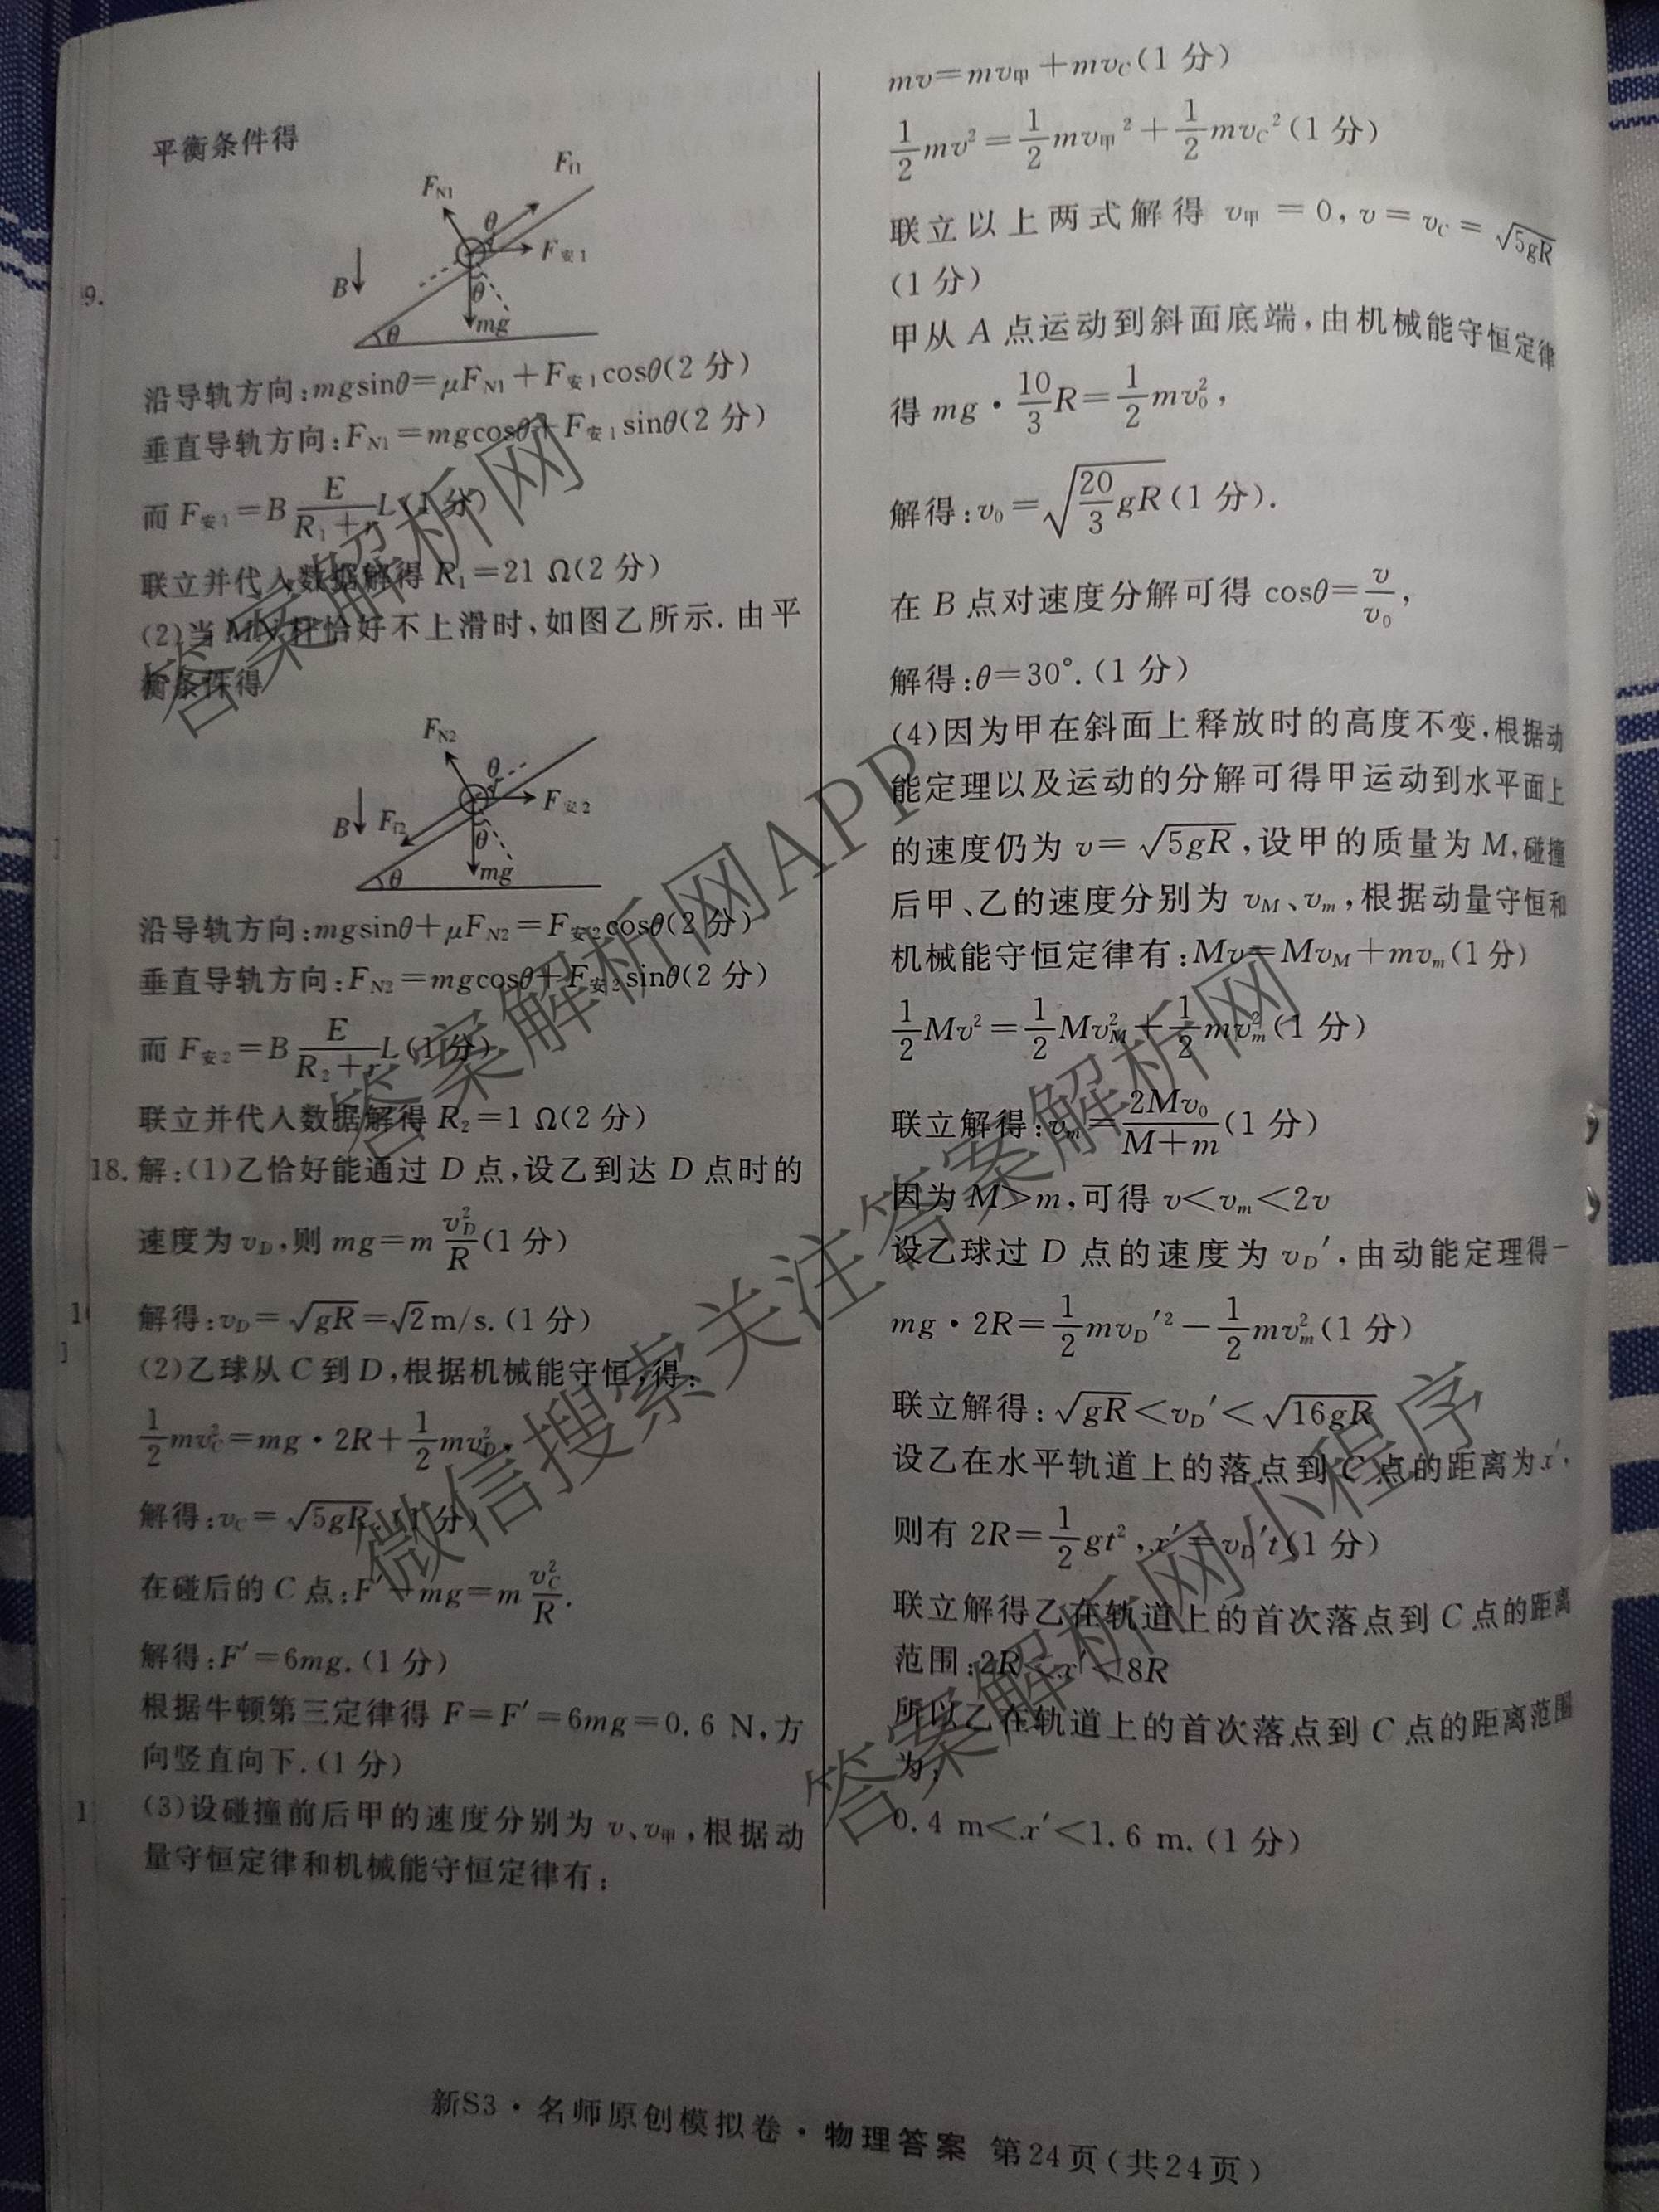 平衡条件得
F_N1
F_f1
θ
F_安1
B↓
θ
mg
θ
9.
沿导轨方向:mgsinθ=μF_N1+F_安1cosθ(2 分)
垂直导轨方向:F_N1=mgcosθ+F_安1sinθ(2 分)
而 F_安1=B\frac{E}{R₁+r}L(1 分)
联立并代入数据解得 R₁=21 Ω(2 分)
(2)当 MN 杆恰好不上滑时,如图乙所示. 由平
衡条件得
F_N2
θ
F_安2
B↓
F_f2
θ
mg
θ
沿导轨方向:mgsinθ+μF_N2=F_安2cosθ(2 分)
垂直导轨方向:F_N2=mgcosθ+F_安2sinθ(2 分)
而 F_安2=B\frac{E}{R₂+r}L(1 分)
联立并代入数据解得 R₂=1 Ω(2 分)
18. 解:(1)乙恰好能通过 D 点,设乙到达 D 点时的
速度为 v_D,则 mg=m\frac{v_D²}{R}(1 分)
解得:v_D=√(gR)=√2m/s. (1 分)
(2)乙球从 C 到 D,根据机械能守恒,得:
\frac{1}{2}mv_C²=mg·2R+\frac{1}{2}mv_D²,
解得:v_C=√(5gR). (1 分)
在碰后的 C 点:F′-mg=m\frac{v_C²}{R}.
解得:F′=6mg. (1 分)
根据牛顿第三定律得 F=F′=6mg=0.6 N,方
向竖直向下. (1 分)
(3)设碰撞前后甲的速度分别为 v、v_甲,根据动
量守恒定律和机械能守恒定律有:
mv=mv_甲+mv_C(1 分)
\frac{1}{2}mv²=\frac{1}{2}mv_甲²+\frac{1}{2}mv_C²(1 分)
联立以上两式解得 v_甲=0, v=v_C=√(5gR)
(1 分)
甲从 A 点运动到斜面底端,由机械能守恒定律
得 mg·\frac{10}{3}R=\frac{1}{2}mv₀²,
解得:v₀=√(\frac{20}{3}gR)(1 分).
在 B 点对速度分解可得 cosθ=\frac{v}{v₀},
解得:θ=30°. (1 分)
(4)因为甲在斜面上释放时的高度不变,根据动
能定理以及运动的分解可得甲运动到水平面上
的速度仍为 v=√(5gR),设甲的质量为 M,碰撞
后甲、乙的速度分别为 v_M、v_m,根据动量守恒和
机械能守恒定律有:Mv=Mv_M+mv_m(1 分)
\frac{1}{2}Mv²=\frac{1}{2}Mv_M²+\frac{1}{2}mv_m²(1 分)
联立解得:v_m=\frac{2Mv₀}{M+m}(1 分)
因为 M>m,可得 v<v_m<2v
设乙球过 D 点的速度为 v_D′,由动能定理得-
mg·2R=\frac{1}{2}mv_D′²-\frac{1}{2}mv_m²(1 分)
联立解得:√(gR)<v_D′<√(16gR)
设乙在水平轨道上的落点到 C 点的距离为 x′,
则有 2R=\frac{1}{2}gt²,x′=v_D′t(1 分)
联立解得乙在轨道上的首次落点到 C 点的距离
范围:2R<x′<8R
所以乙在轨道上的首次落点到 C 点的距离范围
为:
0.4 m<x′<1.6 m. (1 分)
新S3·名师原创模拟卷·物理答案 第24页(共24页)
答案解析网
答案解析网APP
微信搜索关注答案解析网
答案解析网小程序